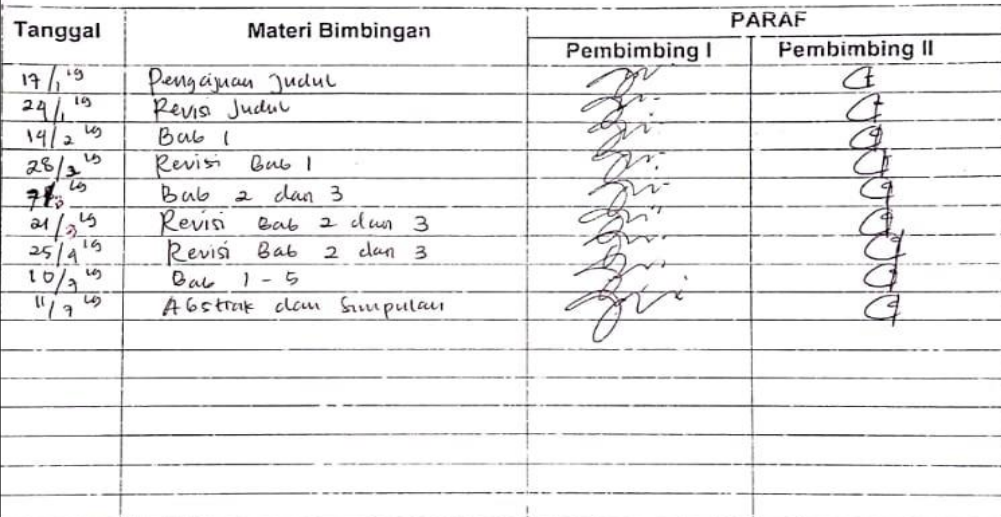 Tanggal Materi Bimbingan PARAF
Pembimbing I Pembimbing II
17/1 19 Pengajuan Judul
24/1 19 Revisi Judul
14/2 19 Bab 1
28/2 19 Revisi Bab 1
Bab 2 dan 3
21/3 19 Revisi Bab 2 dan 3
25/4 19 Revisi Bab 2 dan 3
10/7 19 Bab 1 - 5
11/7 19 Abstrak dan Simpulan